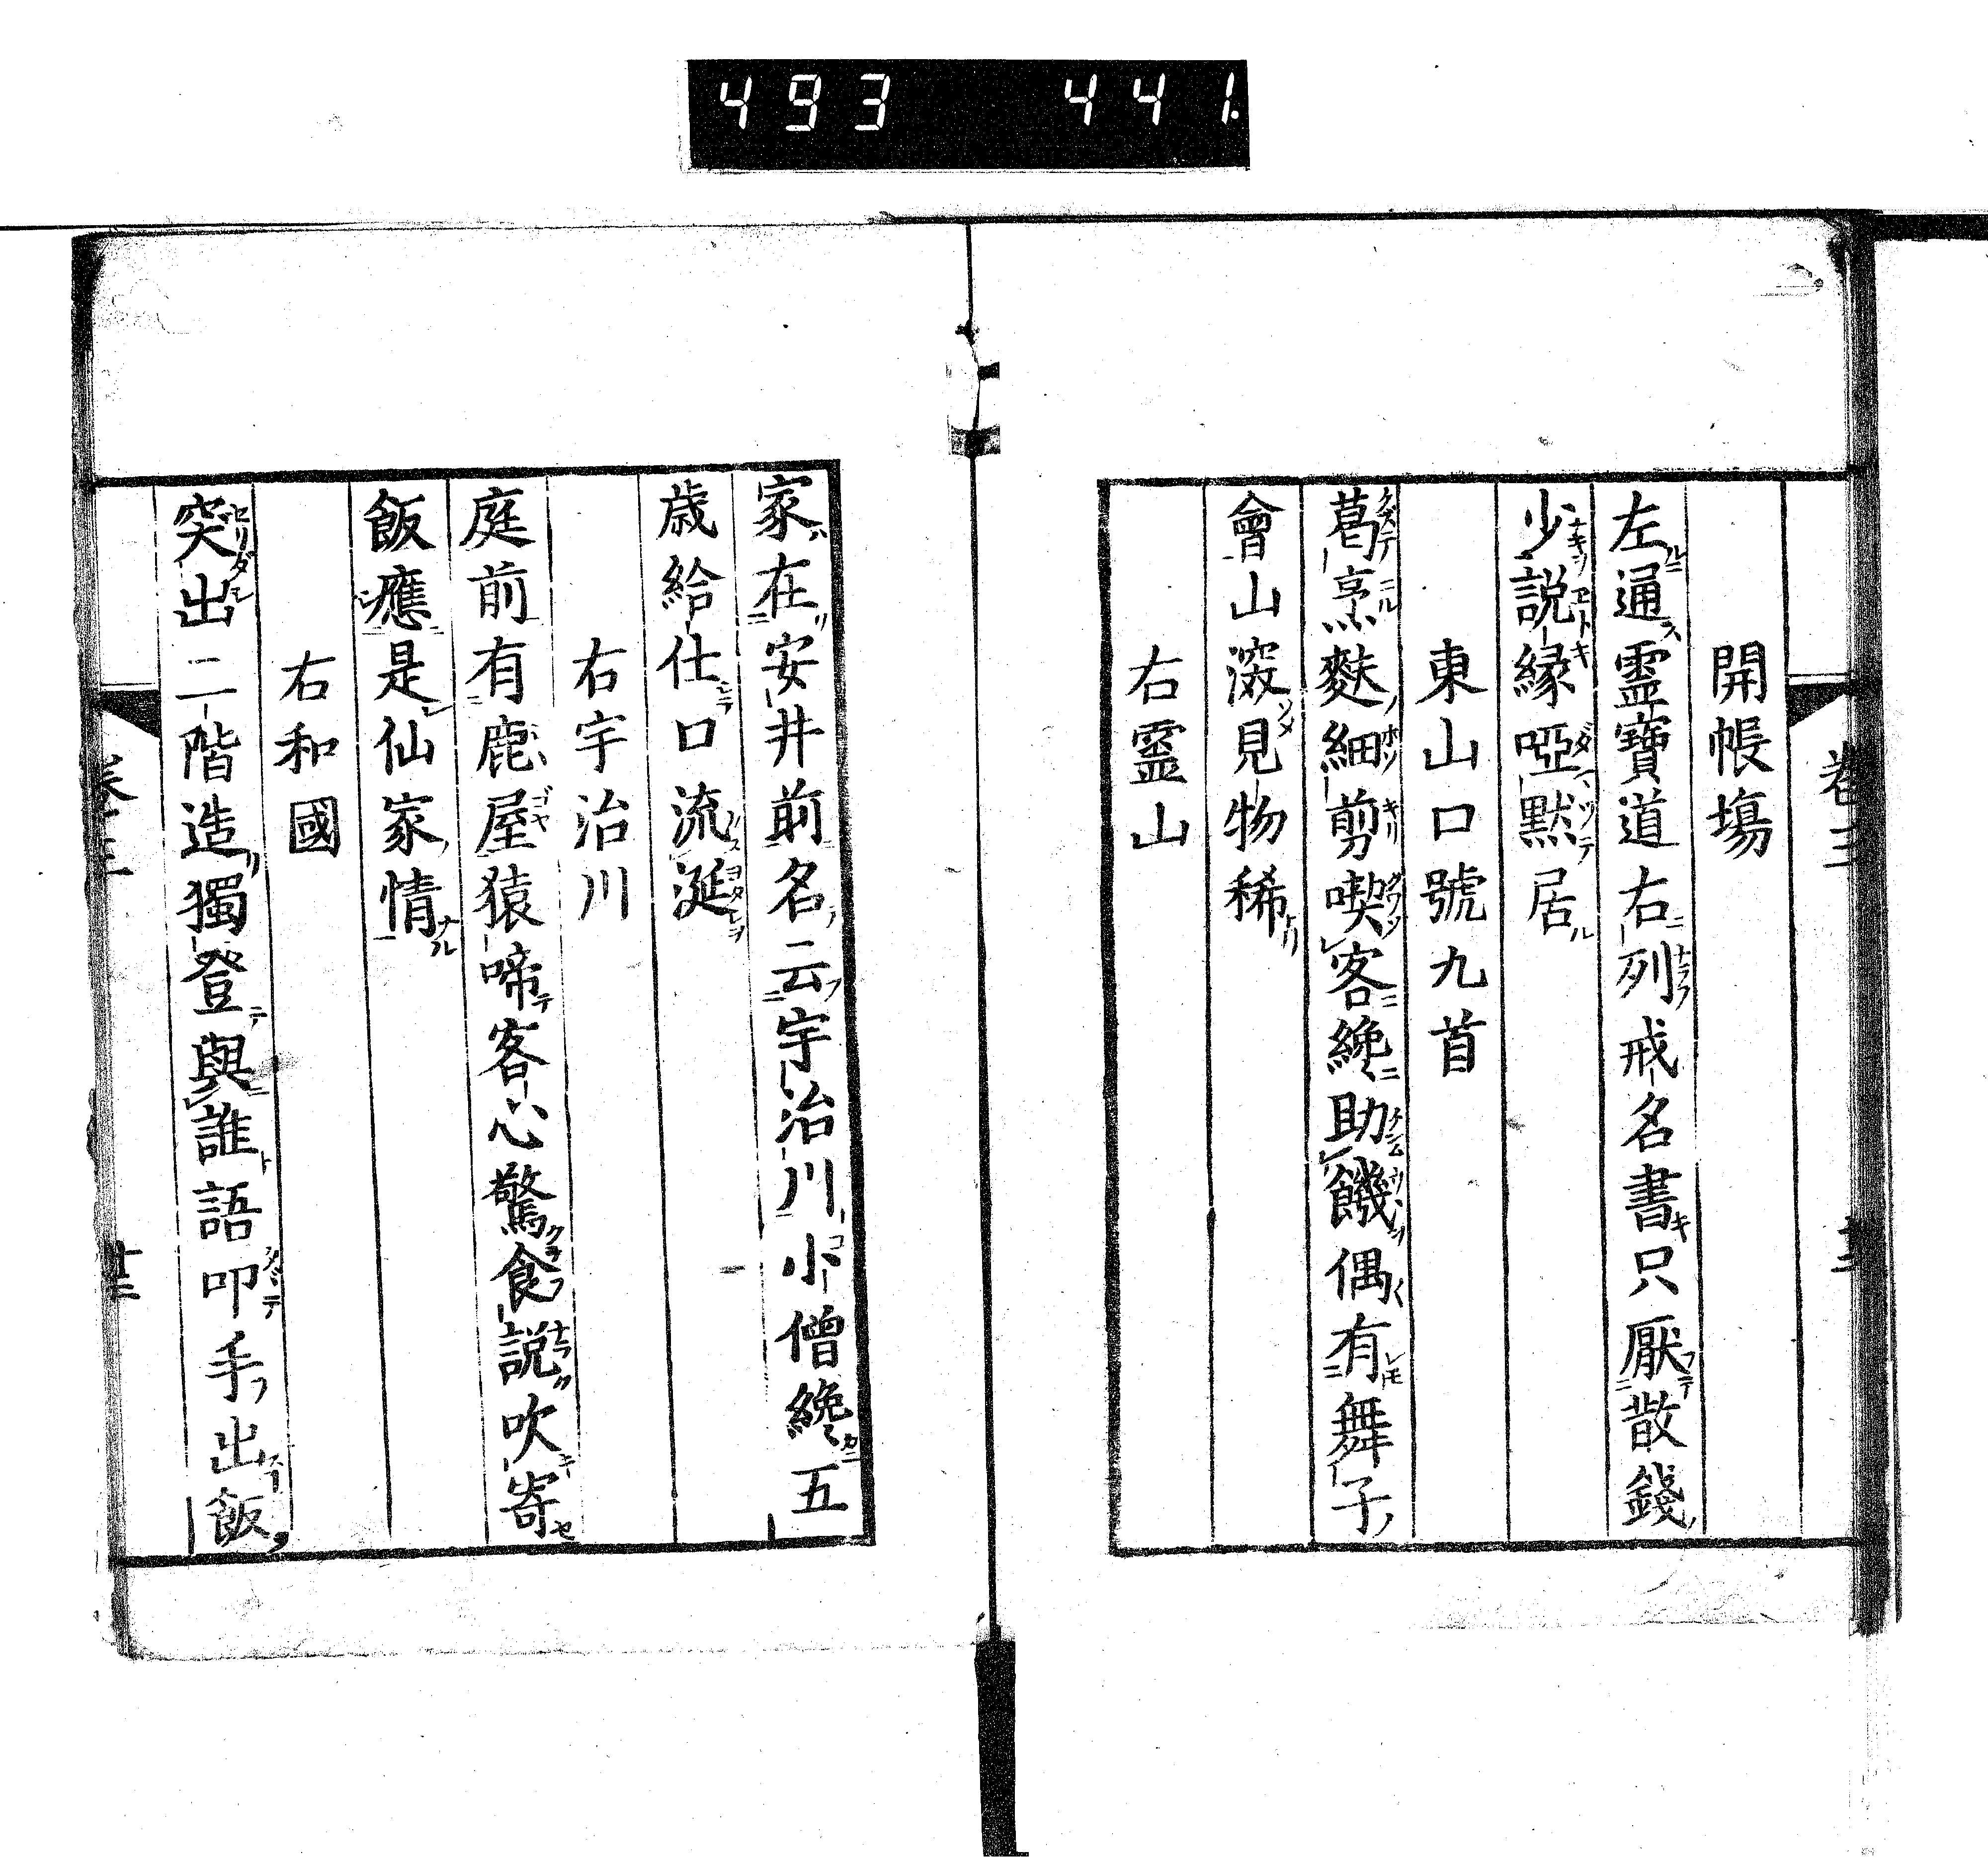 493 441.
卷三
開帳場
左通靈寶道右列戒名書只厭散錢
少説縁啞黙居
東山口號九首
葛烹麩細剪喫客纔助饑偶有舞子
會山濲見物稀
右靈山
家在安井前名云宇治川小僧纔五
歳給仕口流涎
右宇治川
庭前有鹿屋猿啼客心驚食説吹寄
飯應是仙家情
右和國
突出二階造獨登與誰語叩手出飯
卷三